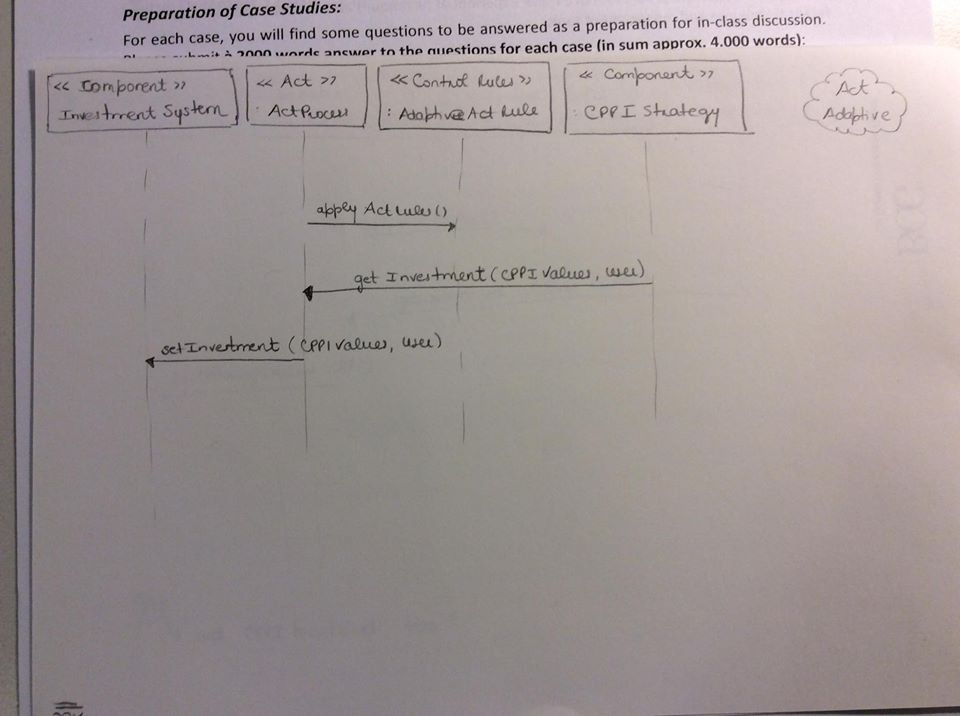 Preparation of Case Studies:
For each case, you will find some questions to be answered as a preparation for in-class discussion.
submit à 2000 words answer to the questions for each case (in sum approx. 4.000 words):
<< Component >>
Investment System
<< Act >>
: ActProcess
<< Control Rules >>
: Adaptive@Act Rule
<< Component >>
: CPPI Strategy
Act
Adaptive
apply ActRules()
get Investment (CPPI Values, user)
setInvestment (CPPI Values, user)